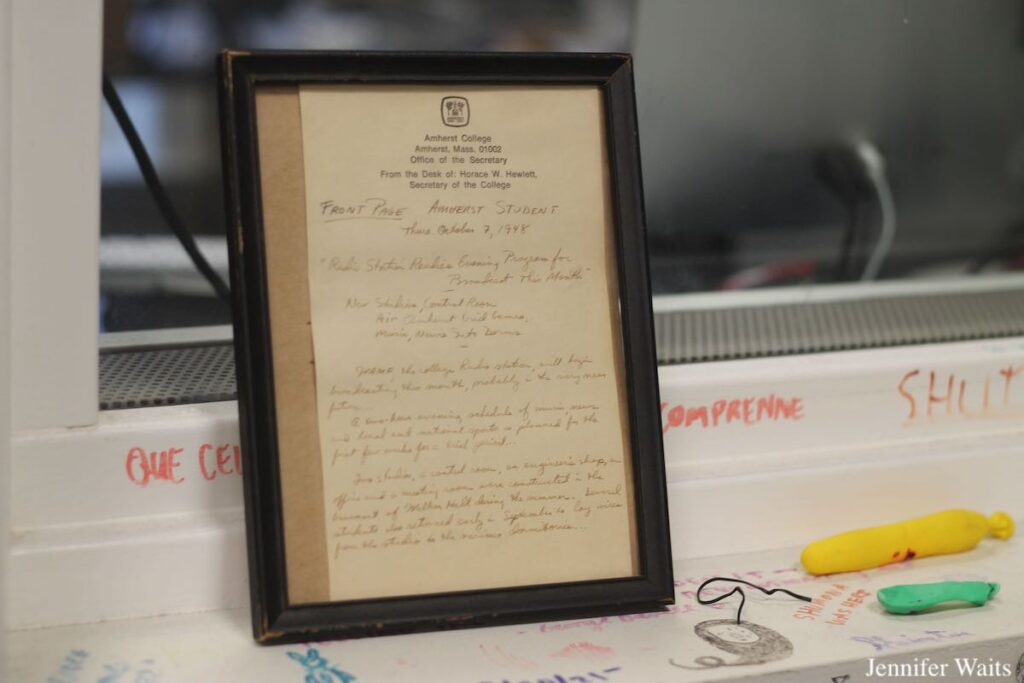 Amherst College
Amherst, Mass. 01002
Office of the Secretary
From the Desk of: Horace W. Hewlett,
Secretary of the College
FRONT PAGE AMHERST STUDENT
Thurs. October 7, 1948
"Radio Station Readies Evening Program for
Broadcast This Month"
New Studios, Control Room
Air Amherst Grid Games,
Music, News Into Dorms
WAMF, the college Radio station, will begin
broadcasting this month, probably in the very near
future...
A two-hour evening schedule of music, news
and local and national sports is planned for the
first few weeks for a trial period...
Two studios, a control room, an engineer's shop, an
office and a meeting room were constructed in the
basement of Walker Hall during the summer. Several
students also returned early in September to lay wires
from the studio to the various dormitories...
QUE CEL
COMPRENNE
SHUT
SHIMONA
WAS HERE
Jennifer Waits